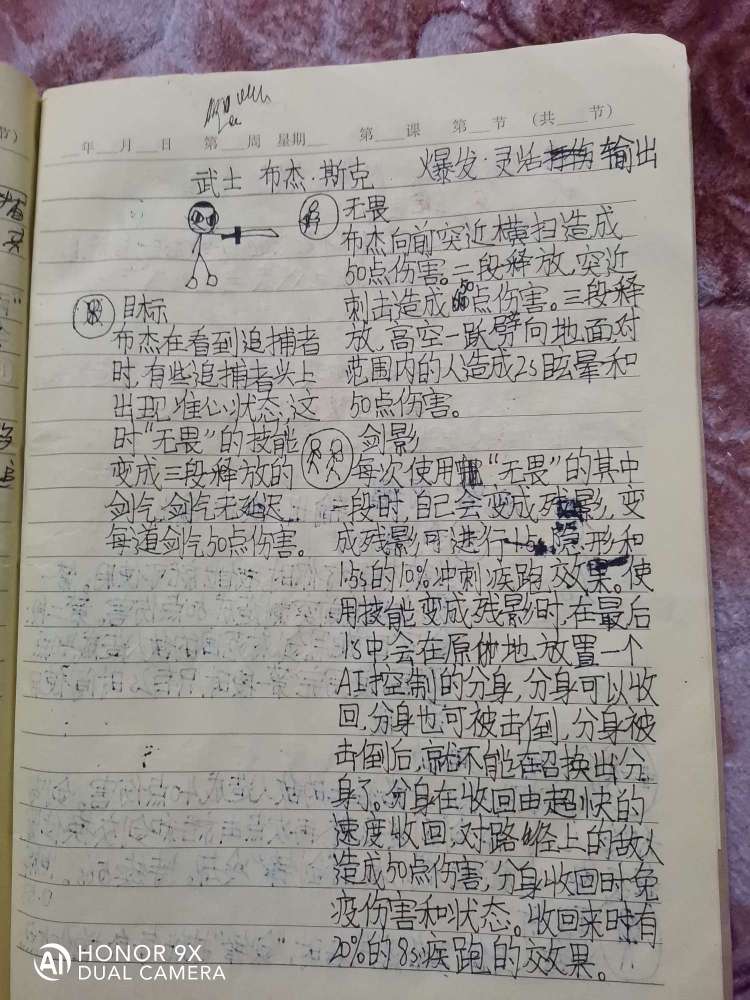 节)
年 月 日 第 周 星期 第 课 第 节 (共 节)
武士 布杰·斯克 爆发·灵活 输出
无畏
布杰向前突近横扫造成
50点伤害。二段释放,突近
刺击造成50点伤害。三段释
放,高空一跃劈向地面,对
范围内的人造成2s眩晕和
50点伤害。
目标
布杰在看到追捕者
时,有些追捕者头上
出现准心状态,这
时“无畏”的技能
变成三段释放的
剑气,剑气无延迟
每道剑气50点伤害。
剑影
每次使用“无畏”的其中
一段时,自己会变成残影,变
成残影可进行1.5s隐形和
1.5s的10%冲刺疾跑效果。使
用技能变成残影时,在最后
1s中会在原地放置一个
AI控制的分身,分身可以收
回,分身也可被击倒,分身被
击倒后,就不能在召换出分
身了。分身在收回由超快的
速度收回,对路径上的敌人
造成50点伤害,分身收回时免
疫伤害和状态。收回来时有
20%的8s疾跑的效果。
HONOR 9X
DUAL CAMERA